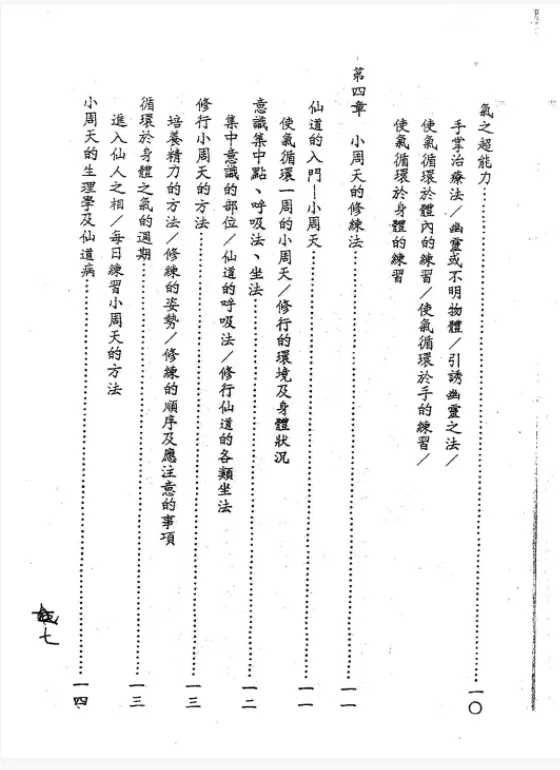 氣之超能力……一〇
手掌治療法／幽靈或不明物體／引誘幽靈之法／
使氣循環於體內的練習／使氣循環於手的練習／
使氣循環於身體的練習
第四章 小周天的修練法……一一
仙道的入門—小周天……一一
使氣循環一周的小周天／修行的環境及身體狀況
意識集中點、呼吸法、坐法……一二
集中意識的部位／仙道的呼吸法／修行仙道的各類坐法
修行小周天的方法……一三
培養精力的方法／修練的姿勢／修練的順序及應注意的事項
循環於身體之氣的週期……一三
進入仙人之相／每日練習小周天的方法
小周天的生理學及仙道病……一四
七